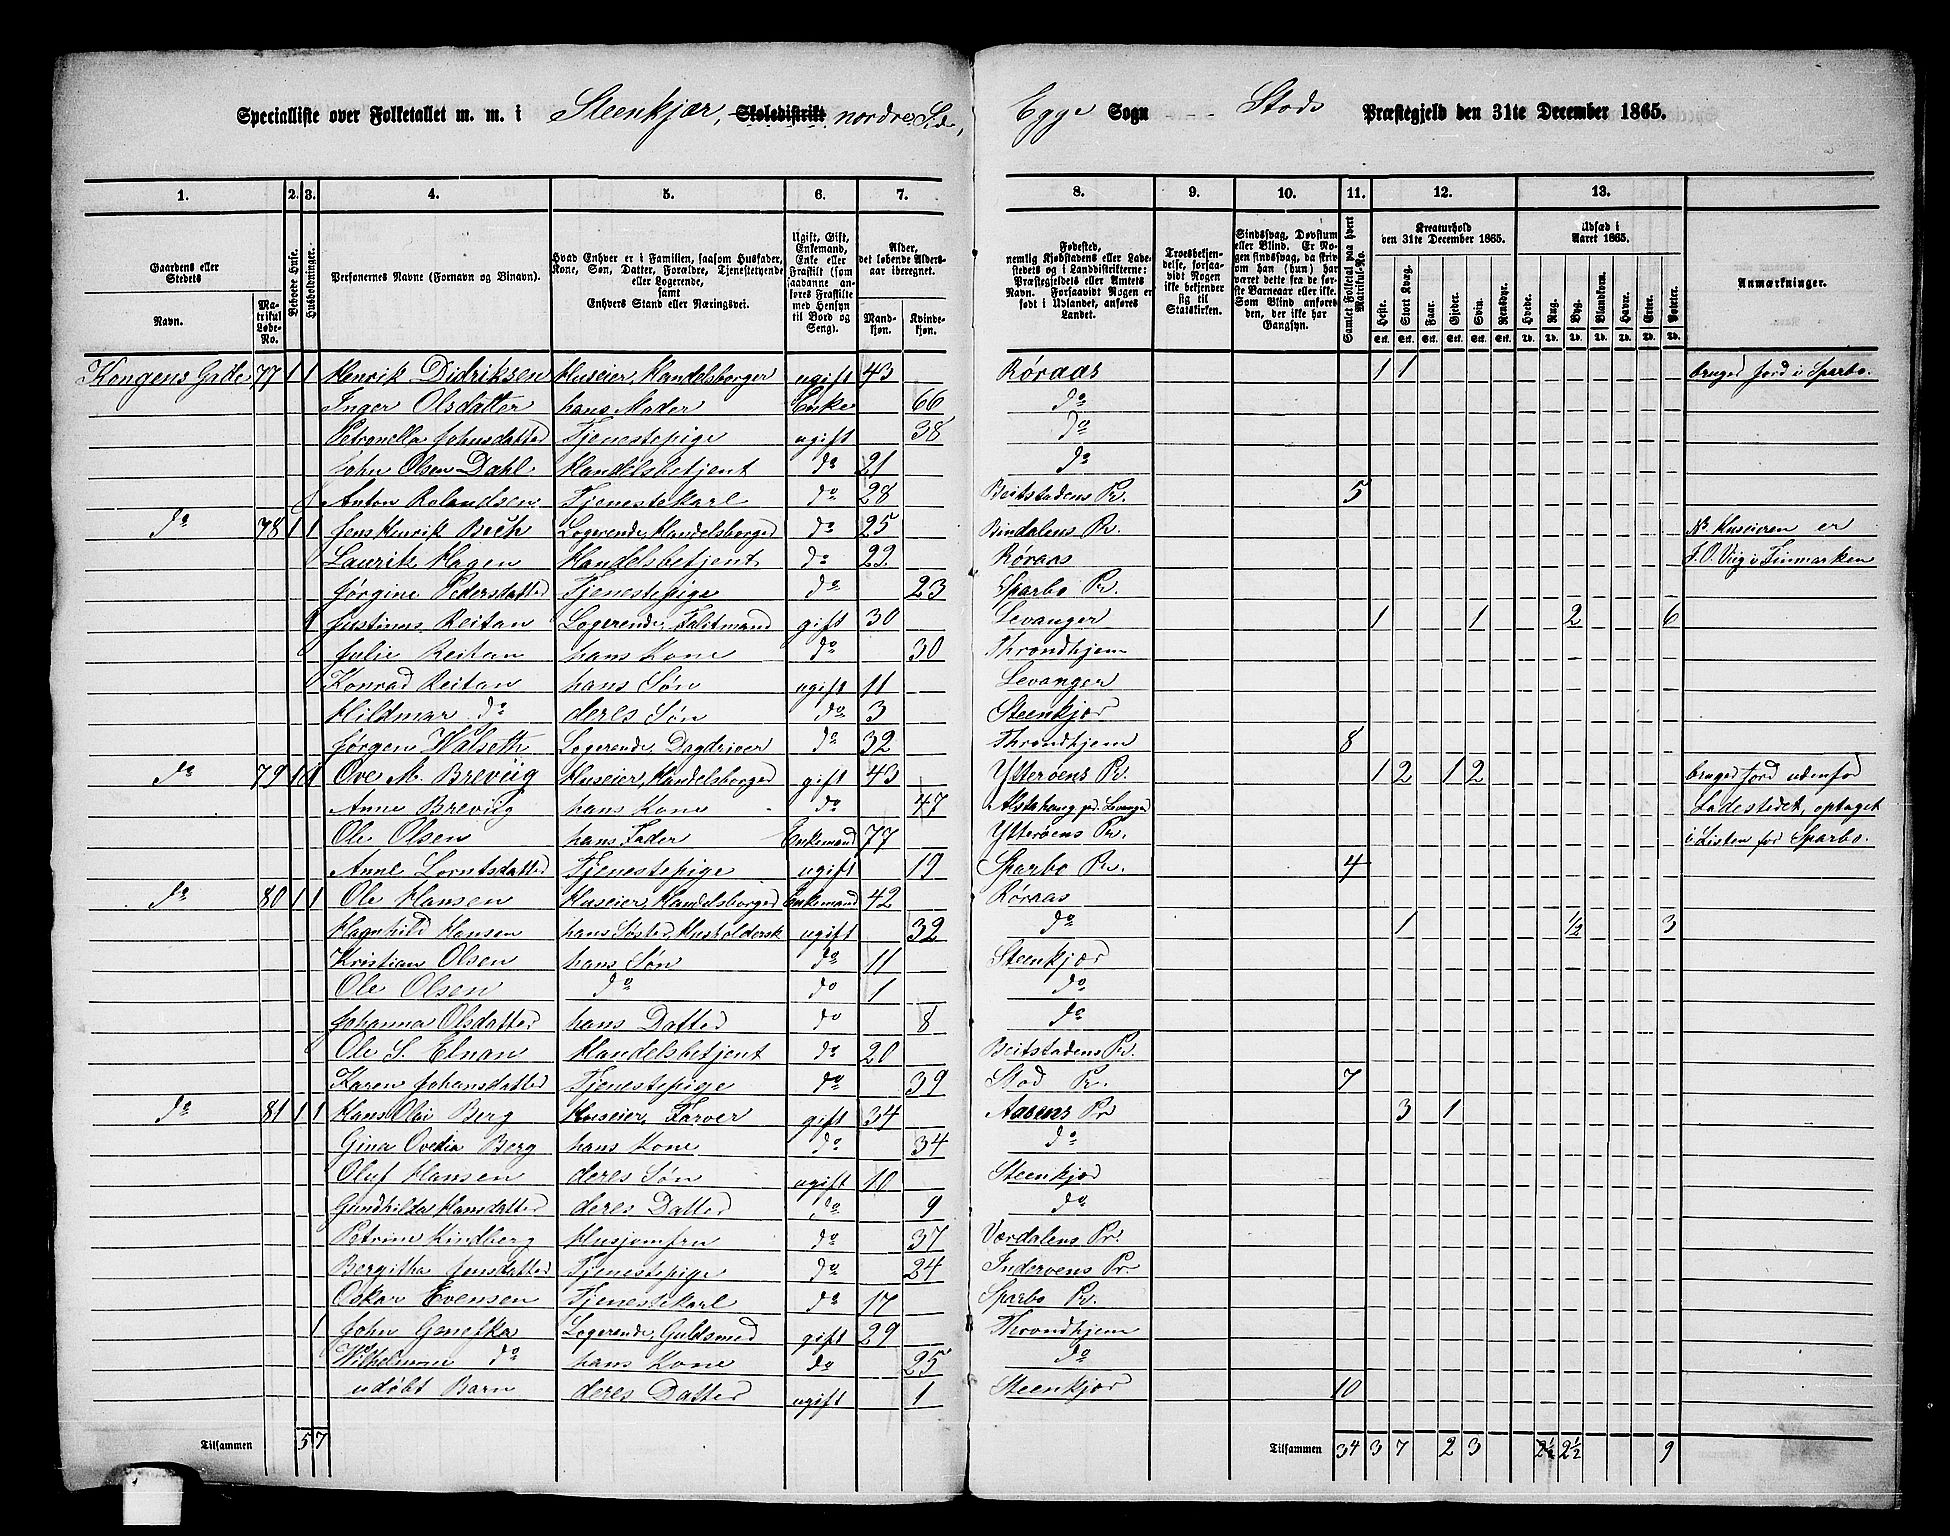 Specialliste over Folketallet m. m. i Steenkjær, Skoledistrikt nordre Side, Egge Sogn Stods Præstegjeld den 31te December 1865.
1. 2. 3. 4. 5. 6. 7. 8. 9. 10. 11. 12. 13.
Gaardens eller Stedets Navn. Matrikul Løbe-No. Beboede Huse. Husholdninger. Personernes Navne (Fornavn og Binavn). Hvad Enhver er i Familien, saasom Husfader, Kone, Søn, Datter, Forældre, Tjenestetyende eller Logerende, samt Enhvers Stand eller Næringsvei. Ugift, Gift, Enkemand, Enke eller Fraskilt (som saadanne anføres Fraskilte med Hensyn til Bord og Seng). Alder, det løbende Aldersaar iberegnet. Mandkjøn. Kvindekjøn.
Fødested, nemlig Kjøbstadens eller Ladestedets og i Landdistrikterne: Præstegjeldets eller Amtets Navn. Forsaavidt Nogen er født i Udlandet, anføres Landet. Troesbekjendelse, forsaavidt Nogen ikke bekjender sig til Statskirken. Sindssvag, Døvstum eller Blind. Er Nogen sindssvag, da skrives om han (hun) har været dette fra de første Barneaar eller ikke. Som Blind anføres den, der ikke har Gangsyn. Samlet Folketal paa hvert Matrikul-No. Kreaturhold den 31te December 1865. Heste. Stort Kvæg. Faar. Gjeder. Sviin. Rensdyr. Udsæd i Aaret 1865. Hvede. Rug. Byg. Blandkorn. Havre. Erter. Poteter. Anmærkninger.
Kongens Gade 77 1 1 Henrik Didriksen Huseier, Handelsborger ugift 43 Røraas 1 1 bruger Jord i Sparbo.
Inger Olsdatter hans Moder Enke 66 do
Petronella Johnsdatter Tjenestepige ugift 38 do
John Olsen Dahl Handelsbetjent do 21 do
Anton Rolandsen Tjenestekarl do 28 Beitstadens Pr. 5
do 78 1 1 Jens Henrik Bech Logerende, Handelsborger do 25 Bindalens Pr. NB. Huseieren er
Lauritz Hagen Handelsbetjent do 22 Røraas J. O. Viig i Finmarken
Jørgine Pedersdatter Tjenestepige do 23 Sparbo Pr.
Justinus Reitan Logerende, Falitmand gift 30 Levanger 1 1 2 6
Julie Reitan hans Kone do 30 Throndhjem
Konrad Reitan hans Søn ugift 11 Levanger
Hildmar do deres Søn do 3 Steenkjær
Jørgen Halseth Logerende, Dagdriver do 32 Throndhjem 8
do 79 1 1 Ove M. Breviig Huseier, Handelsborger gift 43 Ytterøens Pr. 1 2 1 2 bruger Jord udenfor
Anne Breviig hans Kone do 47 Alstahaug pr. Levanger Ladestedet, optaget
Ole Olsen hans Fader Enkemand 77 Ytterøens Pr. i Listen for Sparbo.
Anne Lorntsdatter Tjenestepige ugift 19 Sparbo Pr. 4
do 80 1 1 Ole Hansen Huseier, Handelsborger Enkemand 42 Røraas
Ragnhild Hansen hans Søster, Husholderske ugift 32 do 1 1/2 3
Kristian Olsen hans Søn do 11 Steenkjær
Ole Olsen do do 1 do
Johanna Olsdatter hans Datter do 8 do
Ole S. Elnan Handelsbetjent do 20 Beitstadens Pr.
Karen Johansdatter Tjenestepige do 39 Stod Pr. 7
do 81 1 1 Hans Olai Berg Huseier, Farver gift 34 Aasens Pr 3 1
Gina Ovedia Berg hans Kone do 34 do
Oluf Hansen deres Søn ugift 10 Steenkjær
Gundhilda Hansdatter deres Datter do 9 do
Petrine Kindberg Husjomfru do 37 Værdalens Pr.
Bergitha Jensdatter Tjenestepige do 24 Inderøens Pr.
Oskar Evensen Tjenestekarl do 17 Sparbo Pr.
1 John Genefka Logerende, Guldsmed gift 29 Throndhjem
Wilhelmine do hans Kone do 25 do
udøbt Barn deres Datter ugift 1 Steenkjær 10
Tilsammen 5 7 Tilsammen 34 3 7 2 3 2 1/2 2 1/2 9